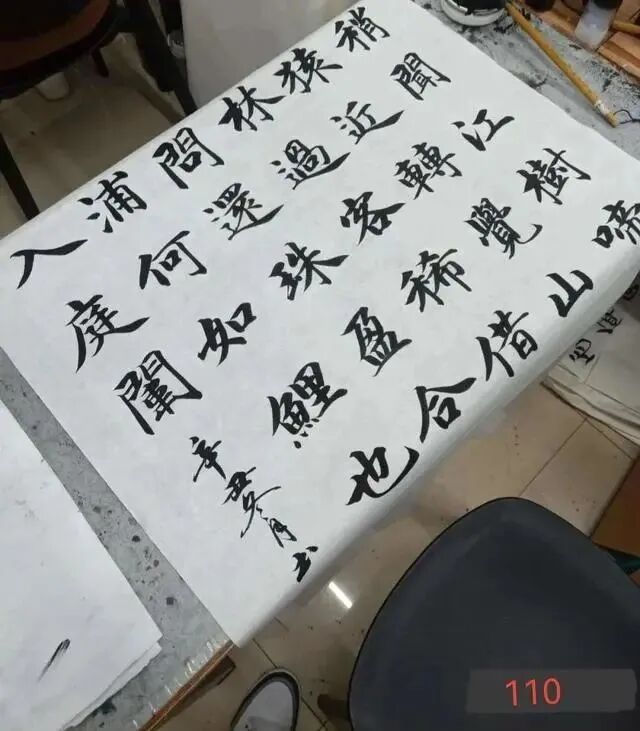 稍聞江樹啼
猿近轉覺山
林過客稀借
問還珠盈合
浦何如鯉也
入庭闈
辛丑冬月書
110